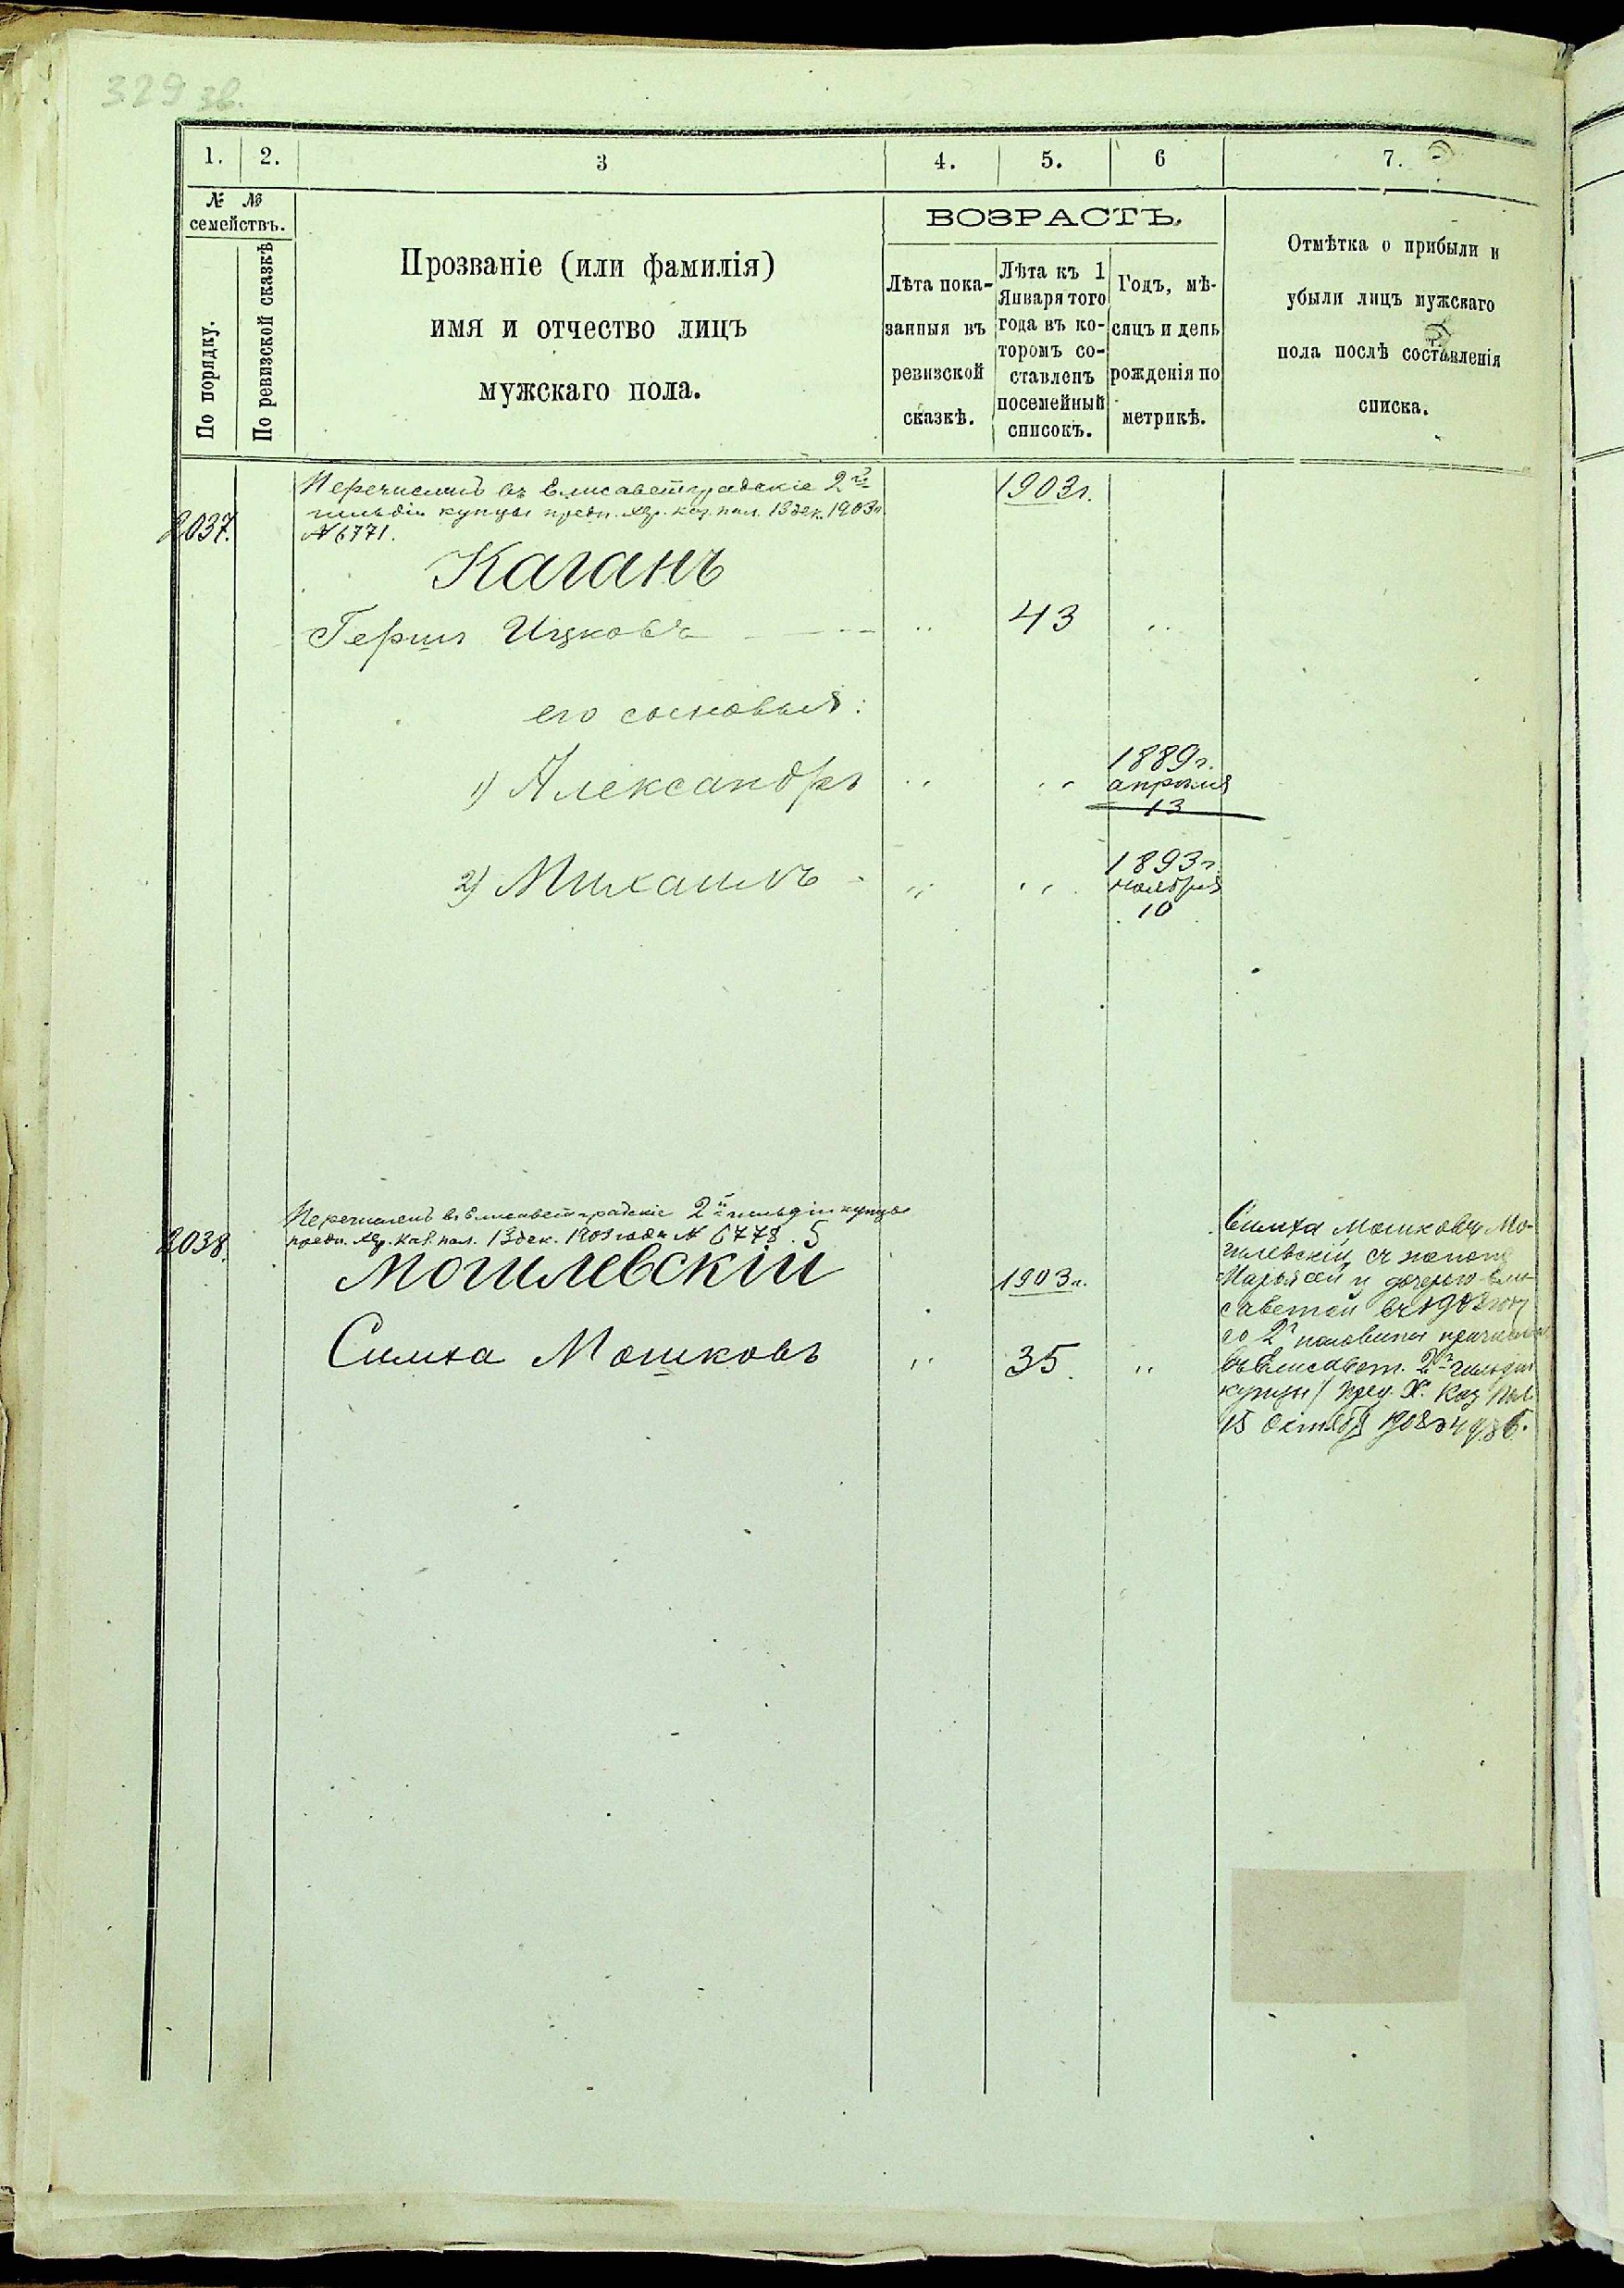 329 зв.
1. 2. 3 4. 5. 6 7.
№ № семействъ.
По порядку.
По ревизской сказкѣ
Прозваніе (или фамилія)
имя и отчество лицъ
мужскаго пола.
ВОЗРАСТЪ.
Лѣта пока-
занныя въ
ревизской
сказкѣ.
Лѣта къ 1
Января того
года въ ко-
торомъ со-
ставленъ
посемейный
списокъ.
Годъ, мѣ-
сяцъ и день
рожденія по
метрикѣ.
Отмѣтка о прибыли и
убыли лицъ мужскаго
пола послѣ составленія
списка.
2037.
Перечисленъ въ Елисаветградскіе 2й
гильдіи купцы предп. Хер. каз. пал. 13 дек. 1903 г.
№ 6771.
1903 г.
Каганъ
Гершъ Ицковъ 43
его сыновья:
1) Александръ
1889 г.
апрѣля
13
2) Михаилъ
1893 г.
ноября
10
2038.
Перечисленъ въ Елисаветградскіе 2й гильдіи купцы
предп. Хер. каз. пал. 13 дек. 1903 года № 6778. 5
Могилевскій
1903 г.
Симха Мошковъ 35
Симха Мошковъ Мо-
гилевскій съ женою
и дочерью Ели-
саветой въ году
со 2й половины
въ Елисавет. 2й гильдіи
купцы / пред. Х. Каз. Пал.
15 Октября